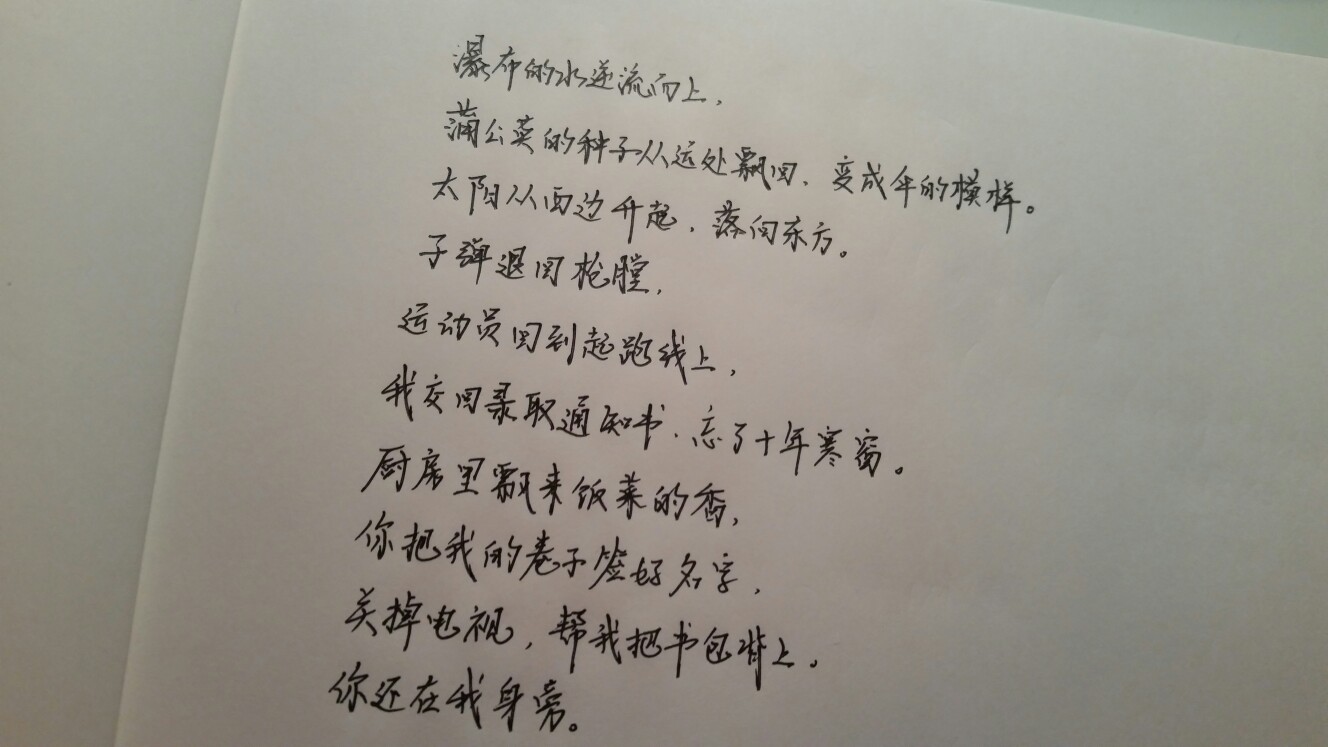 瀑布的水逆流而上，
蒲公英的种子从远处飘回，变成伞的模样。
太阳从西边升起，落向东方。
子弹退回枪膛，
运动员回到起跑线上，
我交回录取通知书，忘了十年寒窗。
厨房里飘来饭菜的香，
你把我的卷子签好名字，
关掉电视，帮我把书包背上。
你还在我身旁。